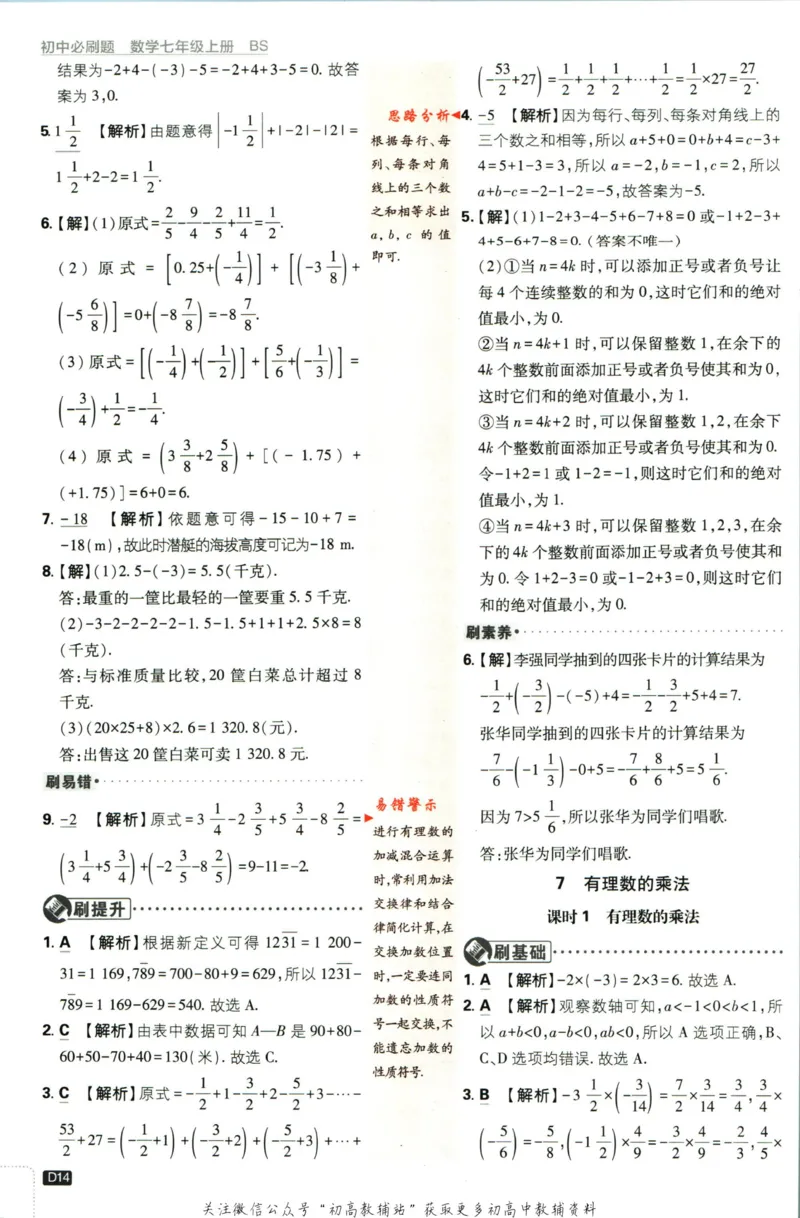 初中必刷题 数学七年级上册 BS
结果为-2+4-(-3)-5=-2+4+3-5=0. 故答
案为 3,0.
5. 1 1/2 【解析】由题意得|-1 1/2|+|-2|-|2|=
1 1/2+2-2=1 1/2.
6.【解】(1)原式=2/5-9/4-2/5+11/4=1/2.
(2) 原 式 = [0.25+(-1/4)] + [(-3 1/8)+
(-5 6/8)]=0+(-8 7/8)=-8 7/8.
(3)原式=[(-1/4)+(-1/2)]+[5/6+(-1/3)]=
(-3/4)+1/2=-1/4.
(4) 原 式 = (3 3/8+2 5/8) + [(- 1.75) +
(+1.75)]=6+0=6.
7. -18 【解析】依题意可得-15-10+7=
-18(m),故此时潜艇的海拔高度可记为-18 m.
8.【解】(1)2.5-(-3)=5.5(千克).
答:最重的一筐比最轻的一筐要重 5.5 千克.
(2)-3-2-2-2-2-1.5-1.5+1+1+2.5×8=8
(千克).
答:与标准质量比较,20 筐白菜总计超过 8
千克.
(3)(20×25+8)×2.6=1 320.8(元).
答:出售这 20 筐白菜可卖 1 320.8 元.
刷易错
9. -2 【解析】原式=3 1/4-2 3/5+5 3/4-8 2/5=
(3 1/4+5 3/4)+(-2 3/5-8 2/5)=9-11=-2.
刷提升
1. A 【解析】根据新定义可得 1231=1 200-
31=1 169,789=700-80+9=629,所以 1231-
789=1 169-629=540. 故选 A.
2. C 【解析】由表中数据可知 A—B 是 90+80-
60+50-70+40=130(米). 故选 C.
3. C 【解析】原式=-1/2+1-3/2+2-5/2+3-…-
53/2+27=(-1/2+1)+(-3/2+2)+(-5/2+3)+…+
D14
思路分析
根据每行、每
列、每条对角
线上的三个数
之和相等求出
a, b, c 的值
即可.
易错警示
进行有理数的
加减混合运算
时,常利用加法
交换律和结合
律简化计算,在
交换加数位置
时,一定要连同
加数的性质符
号一起交换,不
能遗忘加数的
性质符号.
(-53/2+27)=1/2+1/2+1/2+…+1/2=1/2×27=27/2.
4. -5 【解析】因为每行、每列、每条对角线上的
三个数之和相等,所以 a+5+0=0+b+4=c-3+
4=5+1-3=3,所以 a=-2,b=-1,c=2,所以
a+b-c=-2-1-2=-5,故答案为-5.
5.【解】(1)1-2+3-4-5+6-7+8=0 或-1+2-3+
4+5-6+7-8=0. (答案不唯一)
(2)①当 n=4k 时,可以添加正号或者负号让
每 4 个连续整数的和为 0,这时它们和的绝对
值最小,为 0.
②当 n=4k+1 时,可以保留整数 1,在余下的
4k 个整数前面添加正号或者负号使其和为 0,
这时它们和的绝对值最小,为 1.
③当 n=4k+2 时,可以保留整数 1,2,在余下
4k 个整数前面添加正号或者负号使其和为 0.
令-1+2=1 或 1-2=-1,则这时它们和的绝对
值最小,为 1.
④当 n=4k+3 时,可以保留整数 1,2,3,在余
下的 4k 个整数前面添加正号或者负号使其和
为 0. 令 1+2-3=0 或-1-2+3=0,则这时它们
和的绝对值最小,为 0.
刷素养
6.【解】李强同学抽到的四张卡片的计算结果为
-1/2+(-3/2)-(-5)+4=-1/2-3/2+5+4=7.
张华同学抽到的四张卡片的计算结果为
-7/6-(-1 1/3)-0+5=-7/6+8/6+5=5 1/6.
因为 7>5 1/6,所以张华为同学们唱歌.
答:张华为同学们唱歌.
7 有理数的乘法
课时1 有理数的乘法
刷基础
1. A 【解析】-2×(-3)=2×3=6. 故选 A.
2. A 【解析】观察数轴可知,a<-1<0<b<1,所
以 a+b<0,a-b<0,ab<0,所以 A 选项正确,B、
C、D 选项均错误. 故选 A.
3. B 【解析】-3 1/2×(-3/14)=7/2×3/14=3/4,3/4×
(-5/6)=-5/8,(-1 1/2)×4/9=-3/2×4/9=-2/3,4/5×
关注微信公众号“初高教辅站”获取更多初高中教辅资料